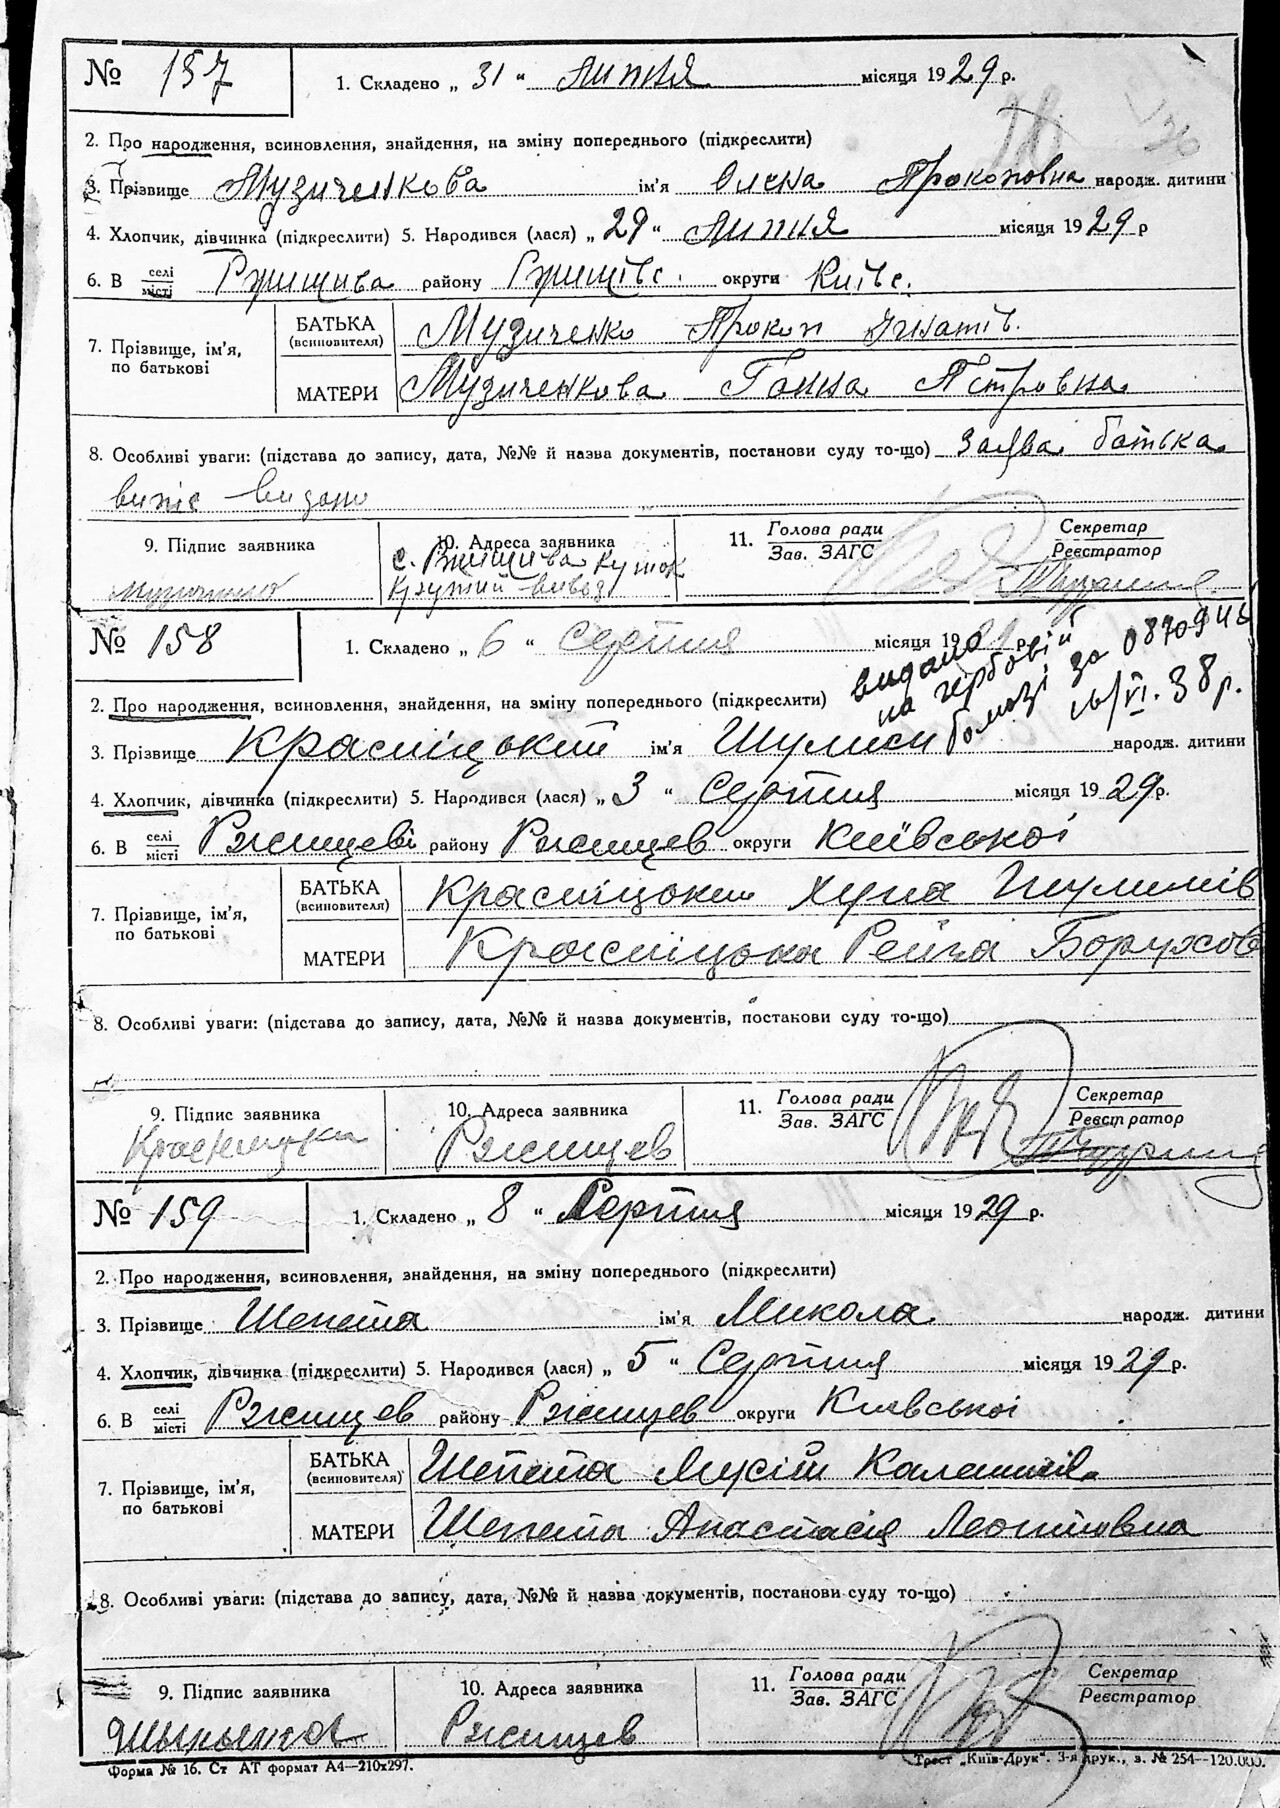 № 157 1. Складено „ 31 “ Липня місяця 1929 р.
2. Про народження, всиновлення, знайдення, на зміну попереднього (підкреслити)
3. Прізвище Музиченкова ім'я Олена Прокоповна народж. дитини
4. Хлопчик, дівчинка (підкреслити) 5. Народився (лася) „ 29 “ Липня місяця 1929 р
6. В селі/місті Ржищива району Ржищівс. округи Київс.
7. Прізвище, ім'я, по батькові
БАТЬКА (всиновителя) Музиченко Прокоп Гнатів.
МАТЕРИ Музиченкова Ганна Петровна
8. Особливі уваги: (підстава до запису, дата, №№ й назва документів, постанови суду то-що) Заява батька
випис видано
9. Підпис заявника 10. Адреса заявника 11. Голова ради/Зав. ЗАГС Секретар/Реєстратор
с. Ржищива куток
№ 158 1. Складено „ 6 “ Серпня місяця 19 р.
видано
на гербовій
бомазі за 087094
VI. 38 р.
2. Про народження, всиновлення, знайдення, на зміну попереднього (підкреслити)
3. Прізвище Красніцький ім'я Шулим народж. дитини
4. Хлопчик, дівчинка (підкреслити) 5. Народився (лася) „ 3 “ Серпня місяця 1929 р.
6. В селі/місті Ржищеві району Ржищев округи Київської
7. Прізвище, ім'я, по батькові
БАТЬКА (всиновителя) Красніцький Хуна Шулимів
МАТЕРИ Красніцька Рейза Борухов
8. Особливі уваги: (підстава до запису, дата, №№ й назва документів, постанови суду то-що)
9. Підпис заявника 10. Адреса заявника 11. Голова ради/Зав. ЗАГС Секретар/Реєстратор
Ржищев
№ 159 1. Складено „ 8 “ Серпня місяця 1929 р.
2. Про народження, всиновлення, знайдення, на зміну попереднього (підкреслити)
3. Прізвище Шепета ім'я Микола народж. дитини
4. Хлопчик, дівчинка (підкреслити) 5. Народився (лася) „ 5 “ Серпня місяця 1929 р.
6. В селі/місті Ржищев району Ржищев округи Київської
7. Прізвище, ім'я, по батькові
БАТЬКА (всиновителя) Шепета Мусій
МАТЕРИ Шепета Анастасія Леонтовна
8. Особливі уваги: (підстава до запису, дата, №№ й назва документів, постанови суду то-що)
9. Підпис заявника 10. Адреса заявника 11. Голова ради/Зав. ЗАГС Секретар/Реєстратор
Ржищев
Форма № 16. Ст АТ формат А4—210х297. Трест „Київ-Друк“. 3-я друк., з. № 254—120.000.